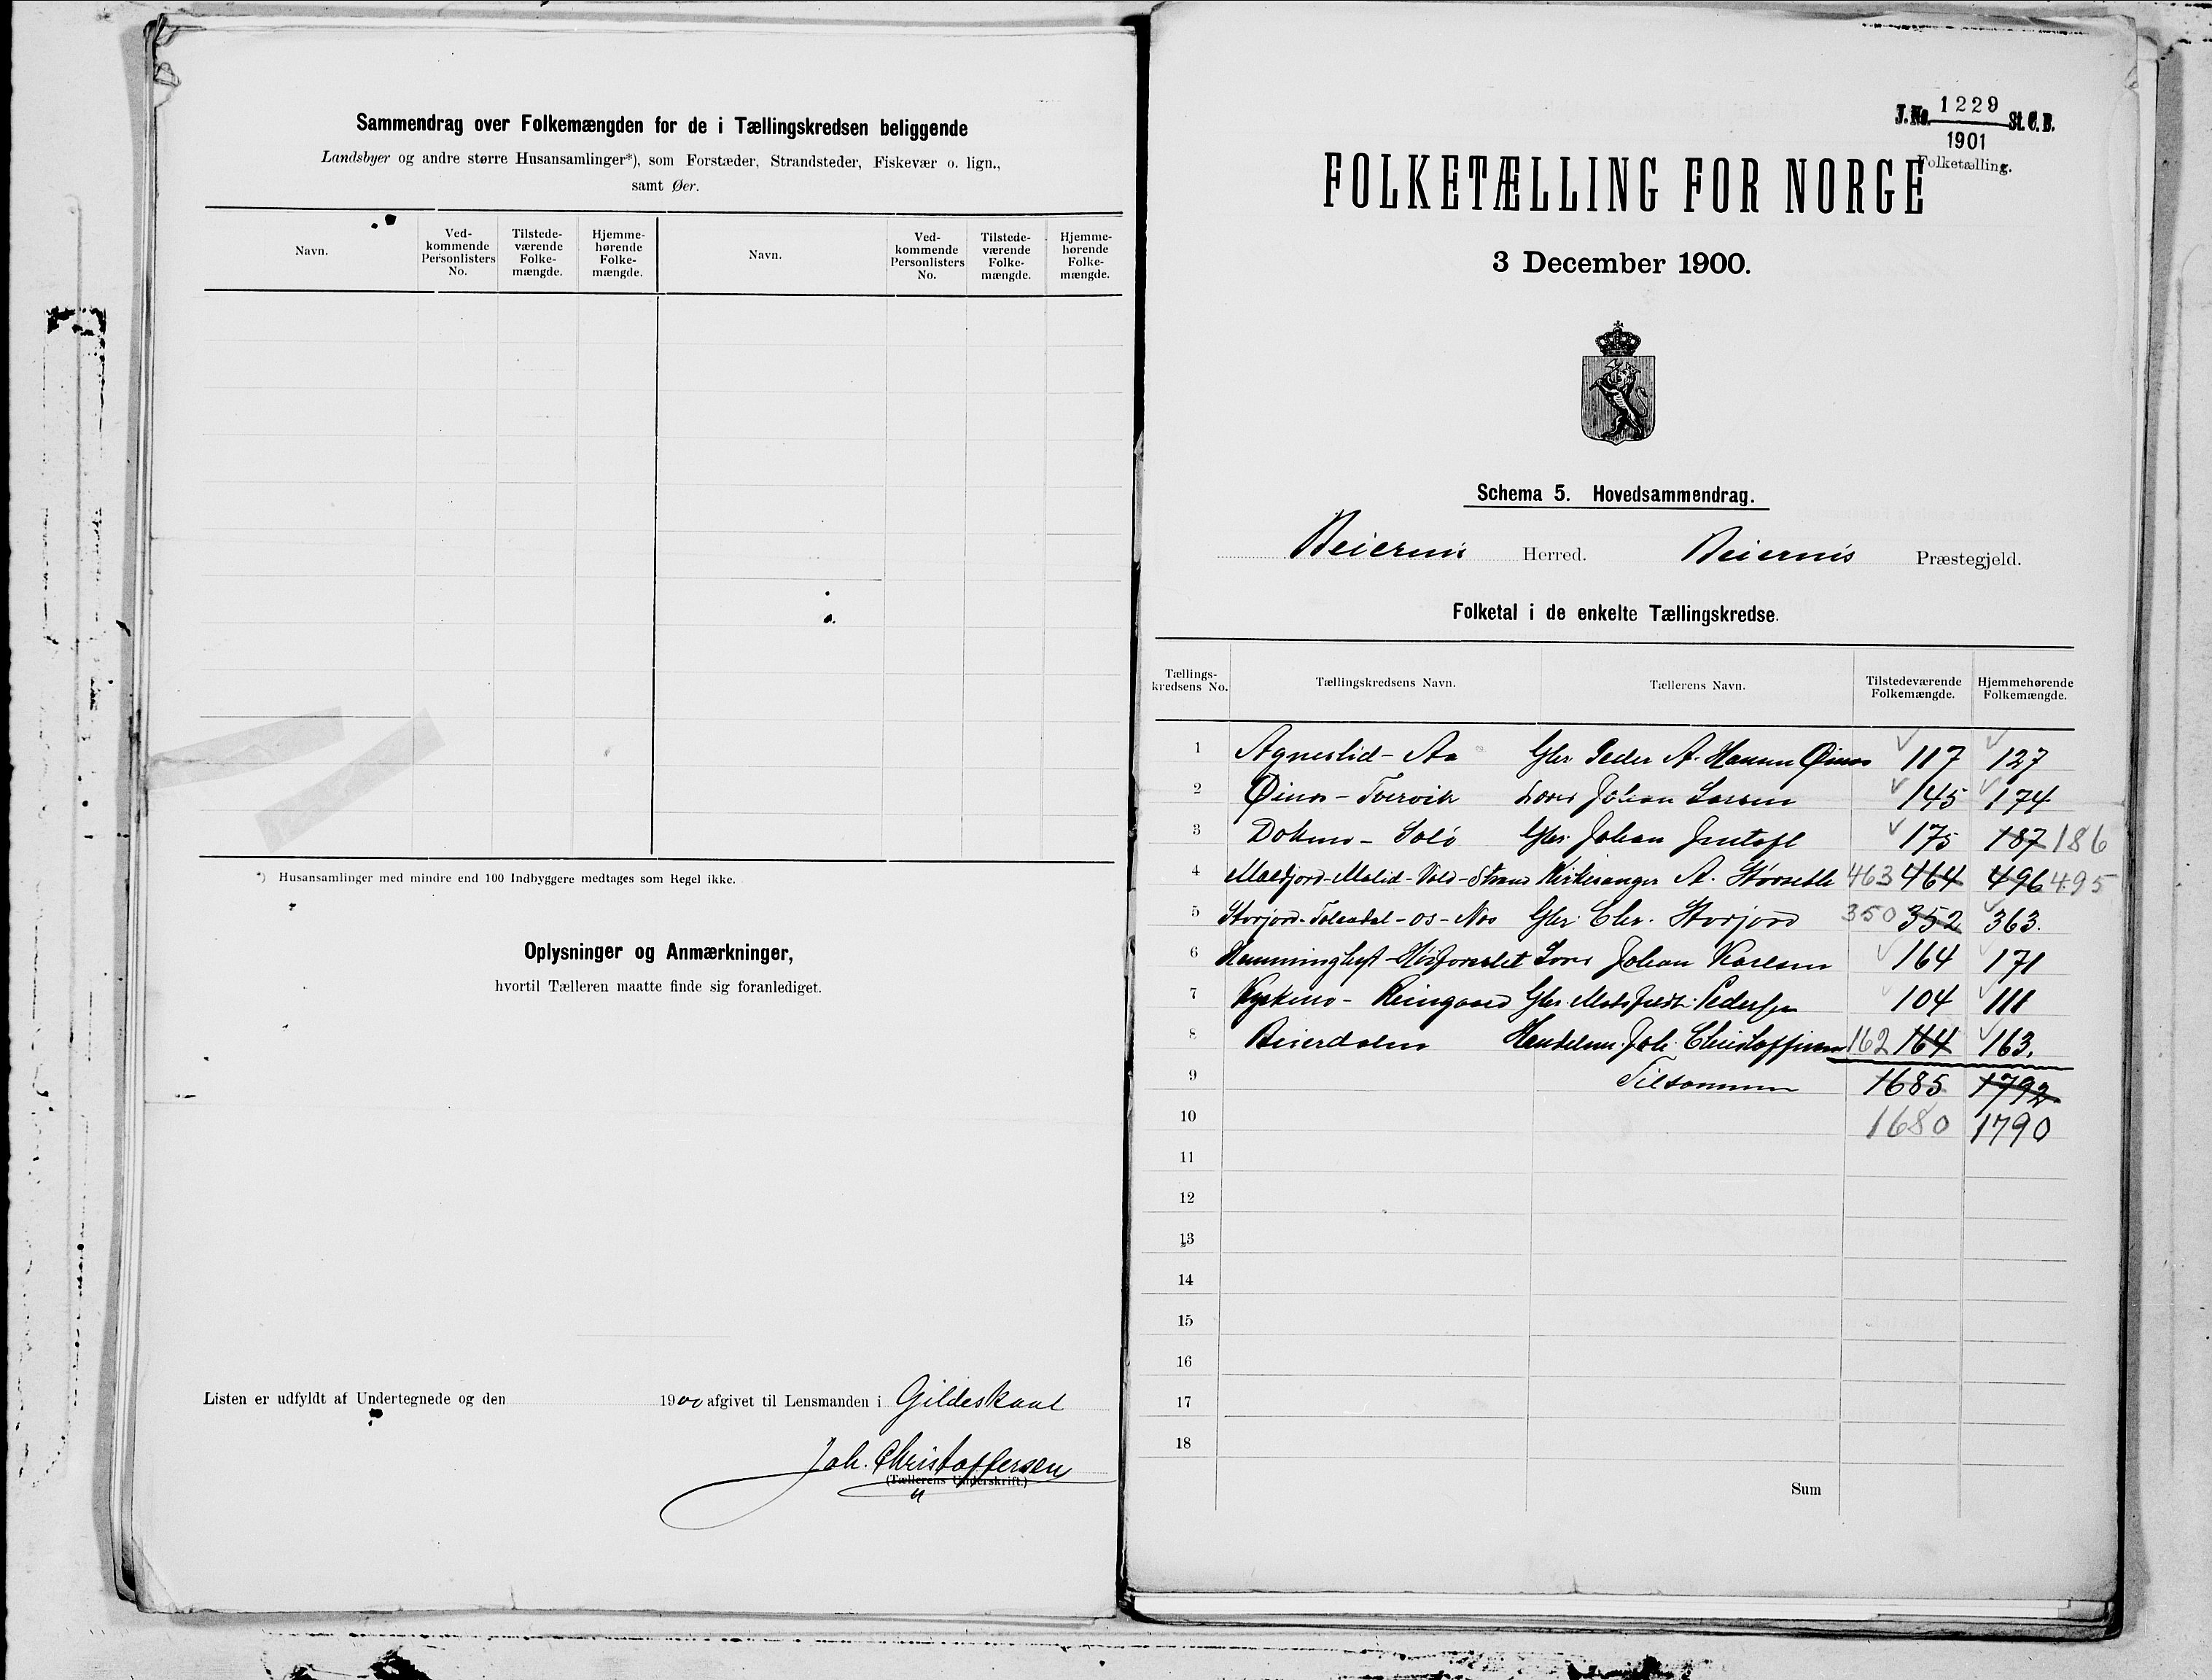 Sammendrag over Folkemængden for de i Tællingskredsen beliggende
Landsbyer og andre større Husansamlinger*), som Forstæder, Strandsteder, Fiskevær o. lign.,
samt Øer.
Navn. Ved-kommende Personlisters No. Tilstede-værende Folke-mængde. Hjemme-hørende Folke-mængde. Navn. Ved-kommende Personlisters No. Tilstede-værende Folke-mængde. Hjemme-hørende Folke-mængde.
*) Husansamlinger med mindre end 100 Indbyggere medtages som Regel ikke.
Oplysninger og Anmærkninger,
hvortil Tælleren maatte finde sig foranlediget.
Listen er udfyldt af Undertegnede og den 1900 afgivet til Lensmanden i Gildeskaal
Joh. Christoffersen
(Tællerens Underskrift.)
J. No. 1229 St. C. B.
1901
Folketælling.
FOLKETÆLLING FOR NORGE
3 December 1900.
Schema 5. Hovedsammendrag.
Beiernis Herred. Beiernis Præstegjeld.
Folketal i de enkelte Tællingskredse.
Tællings-kredsens No. Tællingskredsens Navn. Tællerens Navn. Tilstedeværende Folkemængde. Hjemmehørende Folkemængde.
1 Agneslid - Aa Gbr Peder A. Hansen 117 127
2 Øines - Tvervik Johan Larsen 145 174
3 Dokmo - Solö Gbr. Johan 175 187 186
4 Moldjord - Molid - Vold - Strand Kirkesanger A. 463 464 496 495
5 Storjord - Tollaadal - os - Nos Gbr. Chr. Storjord 350 352 363.
6 Johan Karlsen 164 171
7 Gbr. Pedersen 104 111
8 Beierdalen Handelsm. Joh. Christoffersen 162 164 163.
9 Tilsammen 1685 1792
10 1680 1790
11
12
13
14
15
16
17
18
Sum